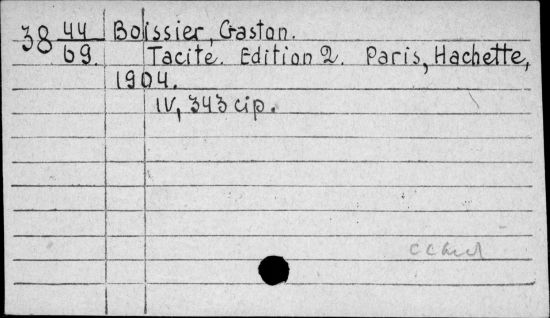 38 44 Boissier, Gaston.
69 Tacite. Edition 2. Paris, Hachette,
1904.
IV, 343 cip.